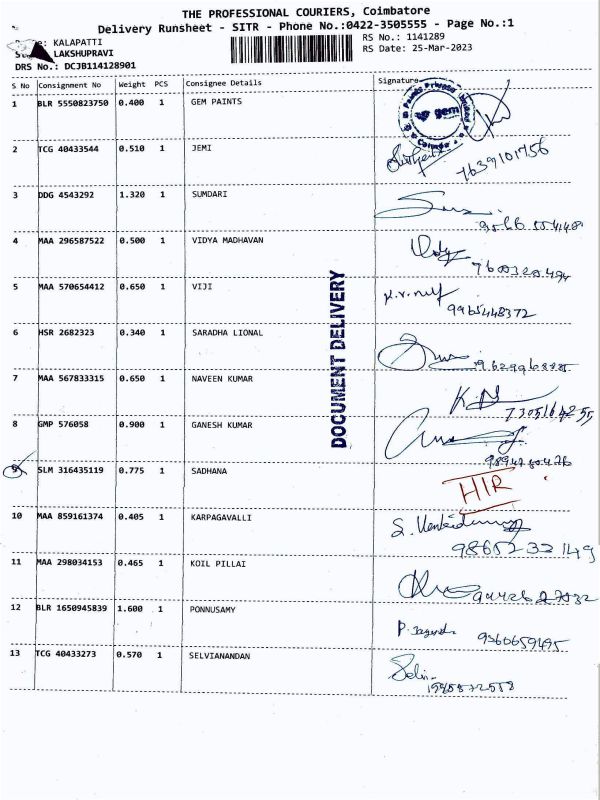 THE PROFESSIONAL COURIERS, Coimbatore
Delivery Runsheet - SITR - Phone No.:0422-3505555 - Page No.:1
KALAPATTI
RS No.: 1141289
LAKSHUPRAVI
RS Date: 25-Mar-2023
DRS No.: DCJB114128901
S No Consignment No Weight PCS Consignee Details Signature
1 BLR 5550823750 0.400 1 GEM PAINTS
gem
2 TCG 40433544 0.510 1 JEMI
7639101756
3 DDG 4543292 1.320 1 SUMDARI
4 MAA 296587522 0.500 1 VIDYA MADHAVAN
5 MAA 570654412 0.650 1 VIJI
9965448372
DOCUMENT DELIVERY
6 HSR 2682323 0.340 1 SARADHA LIONAL
7 MAA 567833315 0.650 1 NAVEEN KUMAR
8 GMP 576058 0.900 1 GANESH KUMAR
9 SLM 316435119 0.775 1 SADHANA
HIR
10 MAA 859161374 0.405 1 KARPAGAVALLI
9865232149
11 MAA 298034153 0.465 1 KOIL PILLAI
12 BLR 1650945839 1.600 1 PONNUSAMY
13 TCG 40433273 0.570 1 SELVIANANDAN